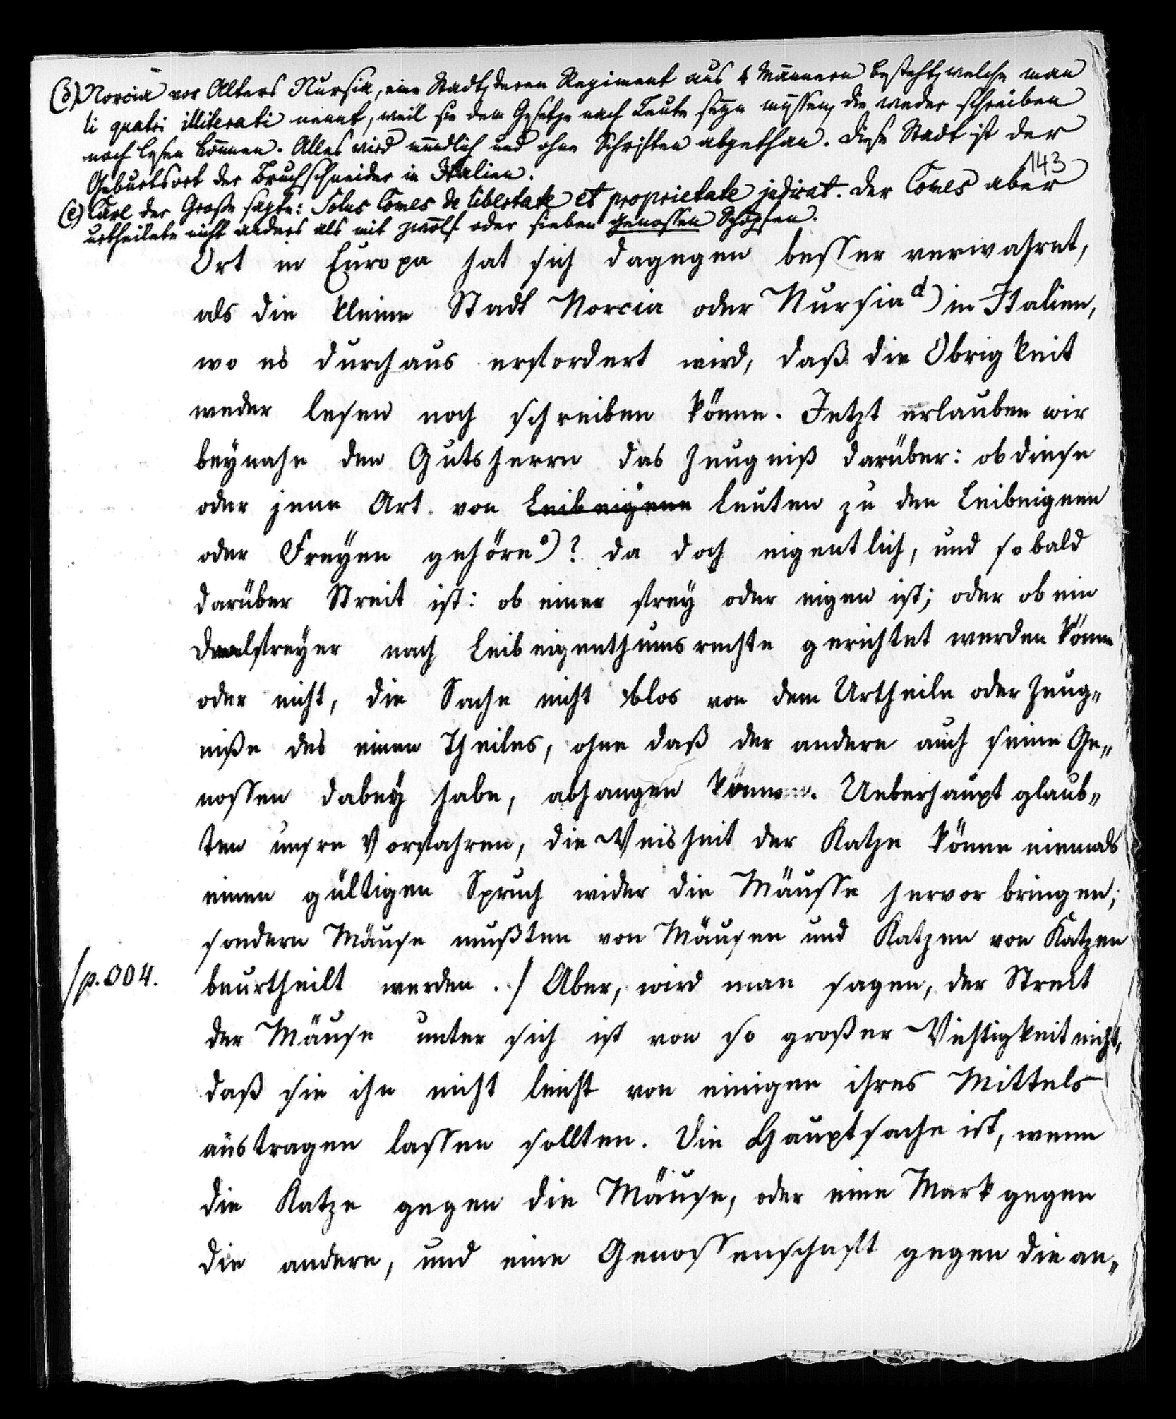 (d). Norcia vor Alters Nursia, eine Stadt, deren Regiment aus 4 Männern besteht, welche man
li quatri illiterati nennt, weil sie dem Gesetze nach Leute seyn müssen, die weder schreiben
noch lesen können. Alles wird mündlich und ohne Schriften abgethan. Diese Stadt ist der
Geburtsort der Bruchschneider in Italien.
143
(e) Carl der Große sagte: Solus Comes de libertate et proprietate judicat. Der Comes aber
urtheilete nicht anders als mit zwölf oder sieben Genossen Schöpfen.
Ort in Europa hat sich dagegen besser verwahret,
als die kleine Stadt Norcia oder Nursia d) in Italien,
wo es durchaus erfordert wird, daß die Obrigkeit
weder lesen noch schreiben könne. Jetzt erlauben wir
beynahe den Gutsherrn das Zeugniß darüber: ob diese
oder jene Art von Leibeigene Leuten zu den Leibeignen
oder Freyen gehöre e)? da doch eigentlich, und so bald
darüber Streit ist: ob einer frey oder eigen ist; oder ob ein
nach Leibeigenthumsrechte gerichtet werden könne
oder nicht, die Sache nicht blos von dem Urtheile oder Zeug„
niße des einen Theiles, ohne daß der andere auch seine Ge„
nossen dabey habe, abhangen können. Ueberhaupt glaub„
ten unsre Vorfahren, die Weisheit der Katze könne niemals
einen gültigen Spruch wider die Mäusse hervor bringen;
sondern Mäuse mußten von Mäusen und Katzen von Katzen
/p. 004.
beurtheilt werden. / Aber, wird man sagen, der Streit
der Mäuse unter sich ist von so großer Wichtigkeit nicht,
daß sie ihn nicht leicht von einigen ihres Mittels
austragen lassen sollten. Die Hauptsache ist, wenn
die Katze gegen die Mäuse, oder eine Mark gegen
die andere, und eine Genossenschaft gegen die an„